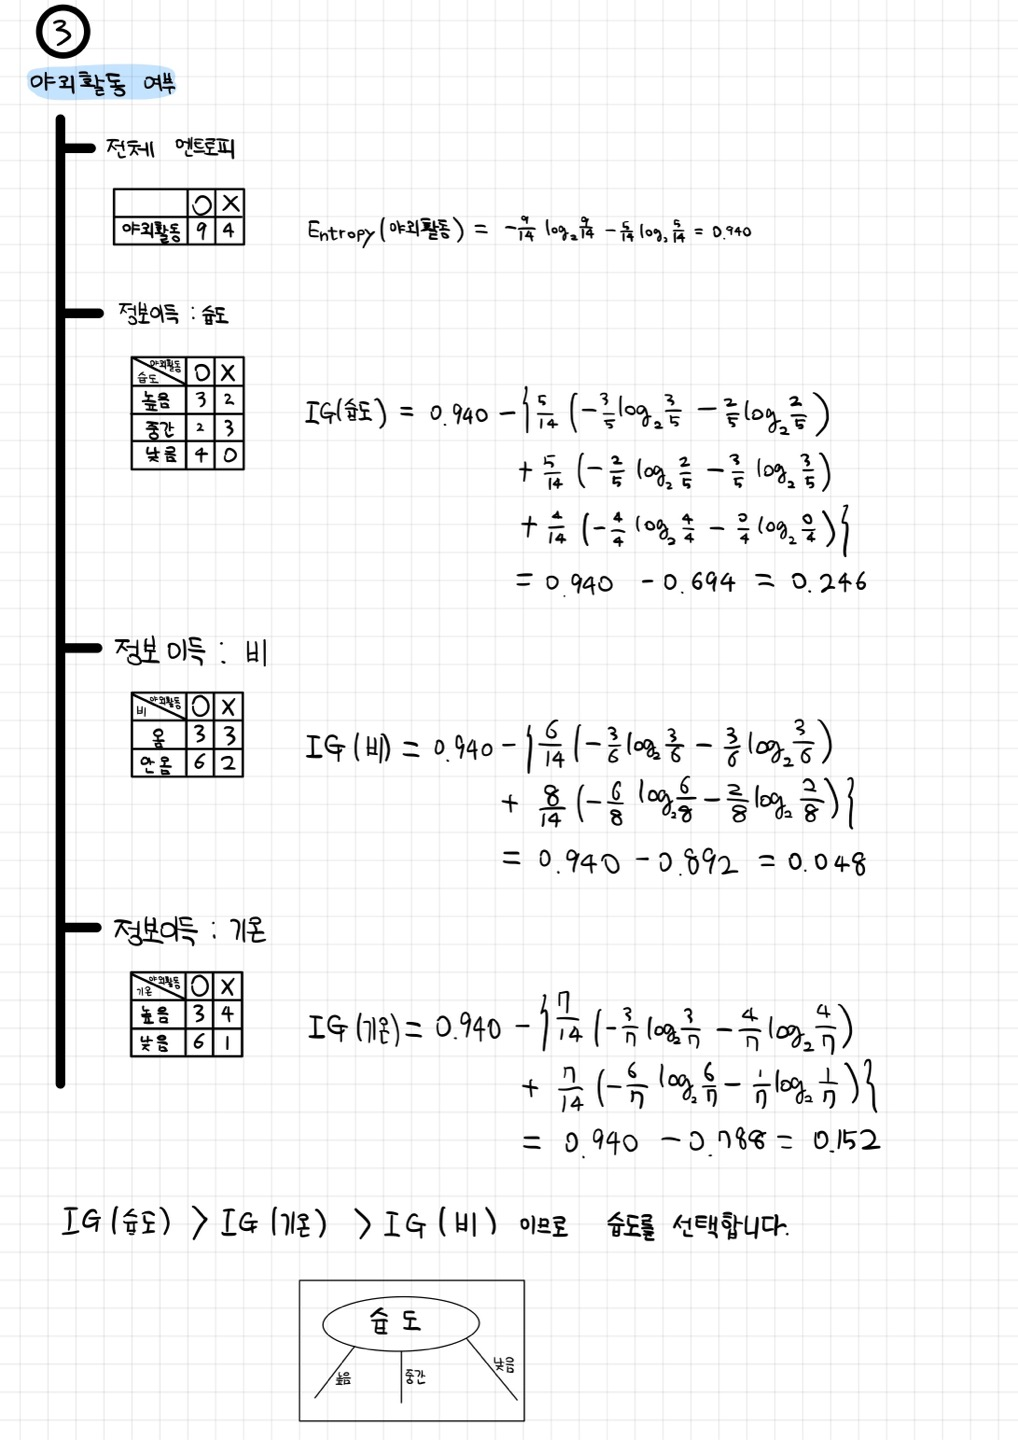 3
야외활동 여부
전체 엔트로피
O X
야외활동 9 4
Entropy(야외활동) = -9/14 log₂ 9/14 - 5/14 log₂ 5/14 = 0.940
정보이득 : 습도
야외활동 습도 O X
높음 3 2
중간 2 3
낮음 4 0
IG(습도) = 0.940 - { 5/14 (-3/5 log₂ 3/5 - 2/5 log₂ 2/5)
+ 5/14 (-2/5 log₂ 2/5 - 3/5 log₂ 3/5)
+ 4/14 (-4/4 log₂ 4/4 - 0/4 log₂ 0/4) }
= 0.940 - 0.694 = 0.246
정보이득 : 비
야외활동 비 O X
옴 3 3
안옴 6 2
IG(비) = 0.940 - { 6/14 (-3/6 log₂ 3/6 - 3/6 log₂ 3/6)
+ 8/14 (-6/8 log₂ 6/8 - 2/8 log₂ 2/8) }
= 0.940 - 0.892 = 0.048
정보이득 : 기온
야외활동 기온 O X
높음 3 4
낮음 6 1
IG(기온) = 0.940 - { 7/14 (-3/7 log₂ 3/7 - 4/7 log₂ 4/7)
+ 7/14 (-6/7 log₂ 6/7 - 1/7 log₂ 1/7) }
= 0.940 - 0.788 = 0.152
IG(습도) > IG(기온) > IG(비) 이므로 습도를 선택합니다.
습도
높음 중간 낮음